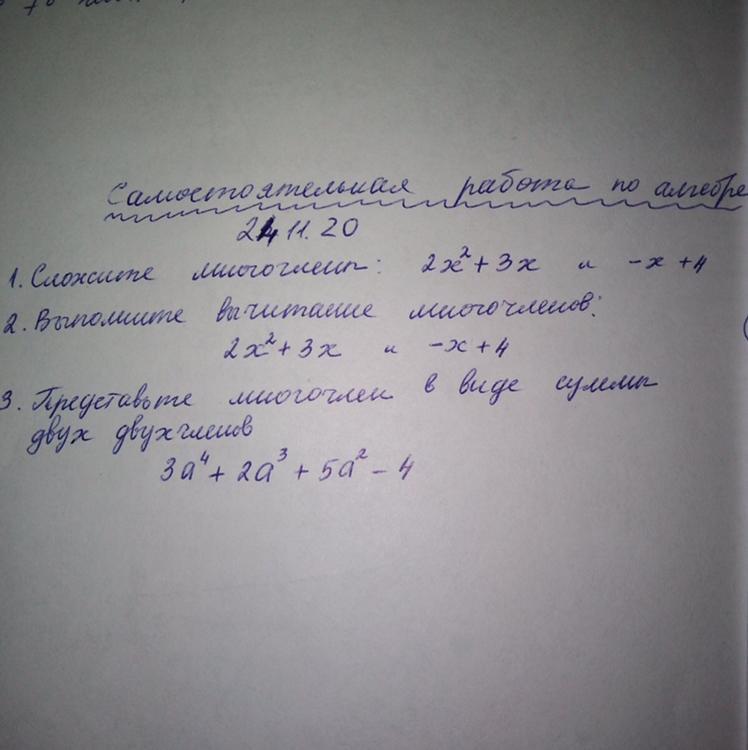 Самостоятельная работа по алгебре
24 11. 20
1. Сложите многочлены: 2x² + 3x и -x + 4
2. Выполните вычитание многочленов:
2x² + 3x и -x + 4
3. Представьте многочлен в виде суммы
двух двухчленов
3a⁴ + 2a³ + 5a² - 4